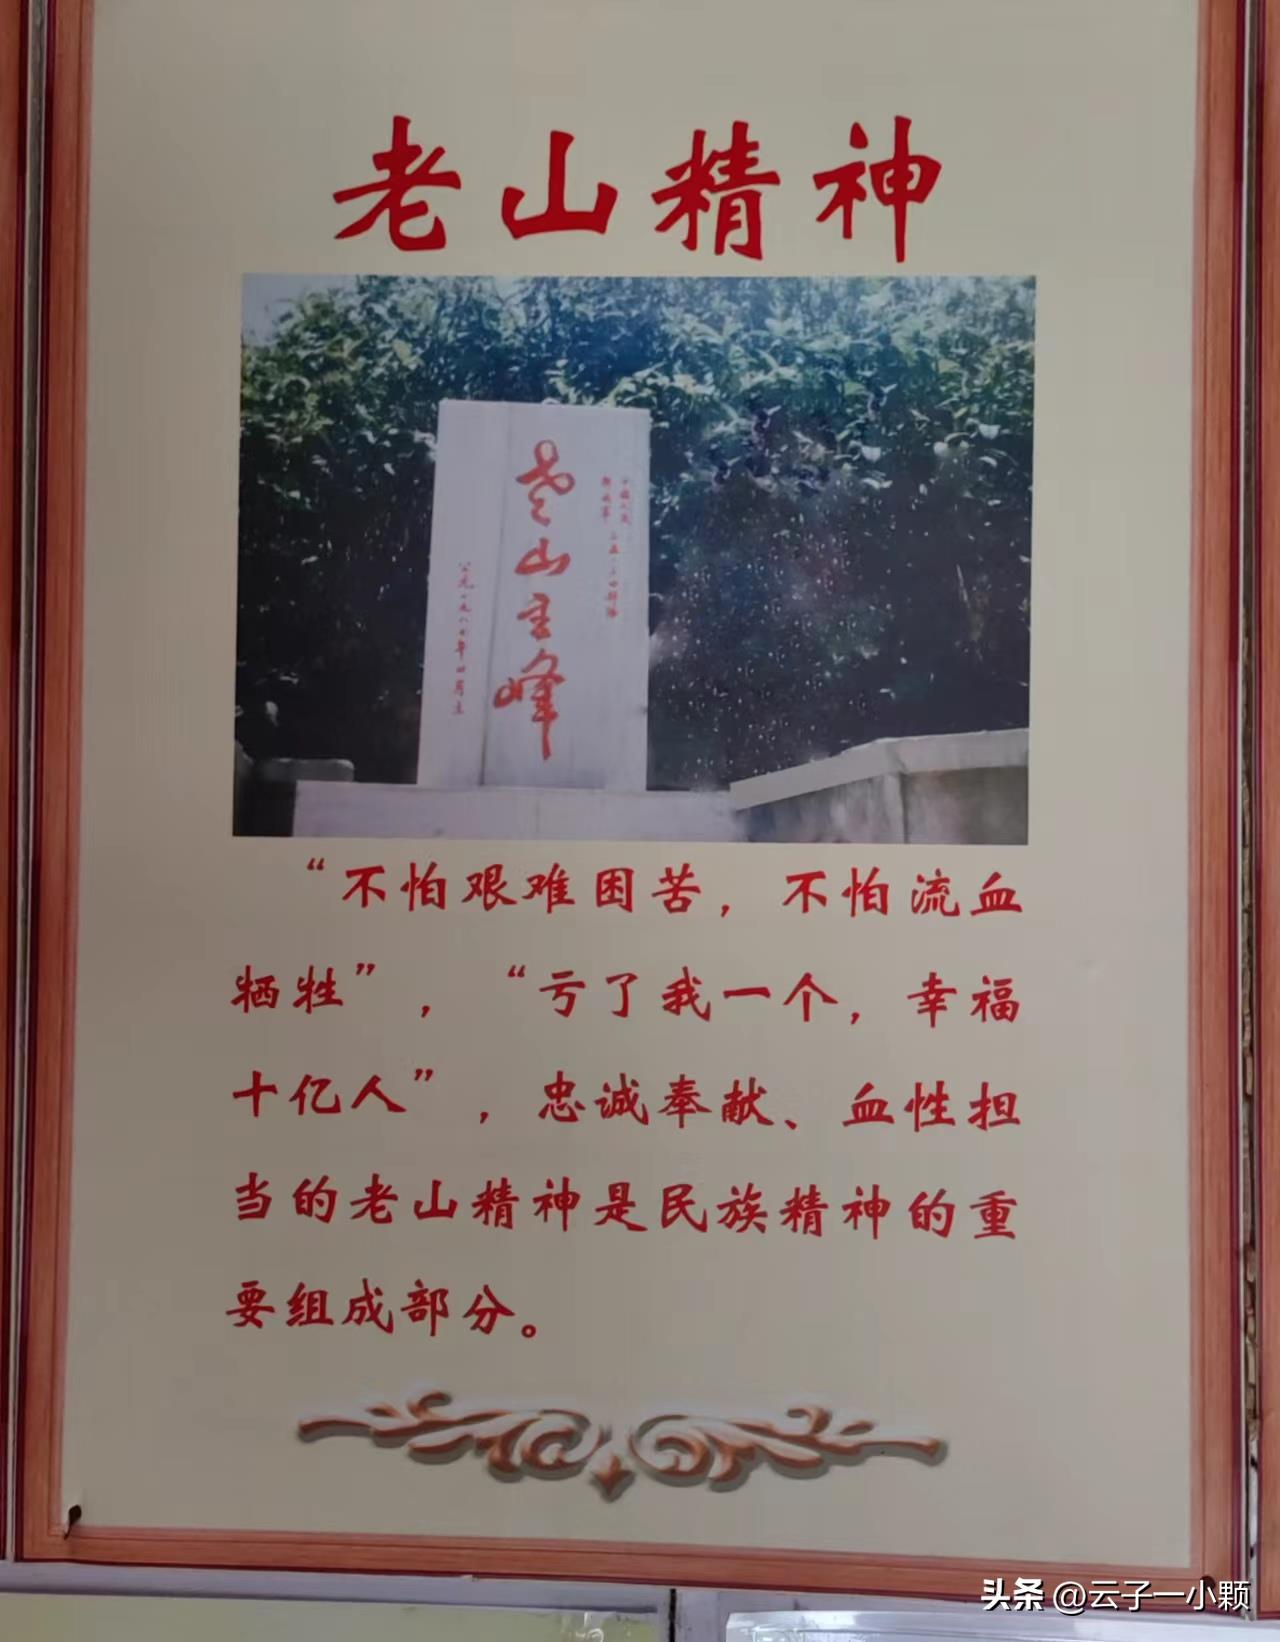 老山精神
中国人民
解放军 三五一三四部队
老山主峰
公元一九八七年四月立
“不怕艰难困苦，不怕流血
牺牲”，“亏了我一个，幸福
十亿人”，忠诚奉献、血性担
当的老山精神是民族精神的重
要组成部分。
头条 @云子一小颗